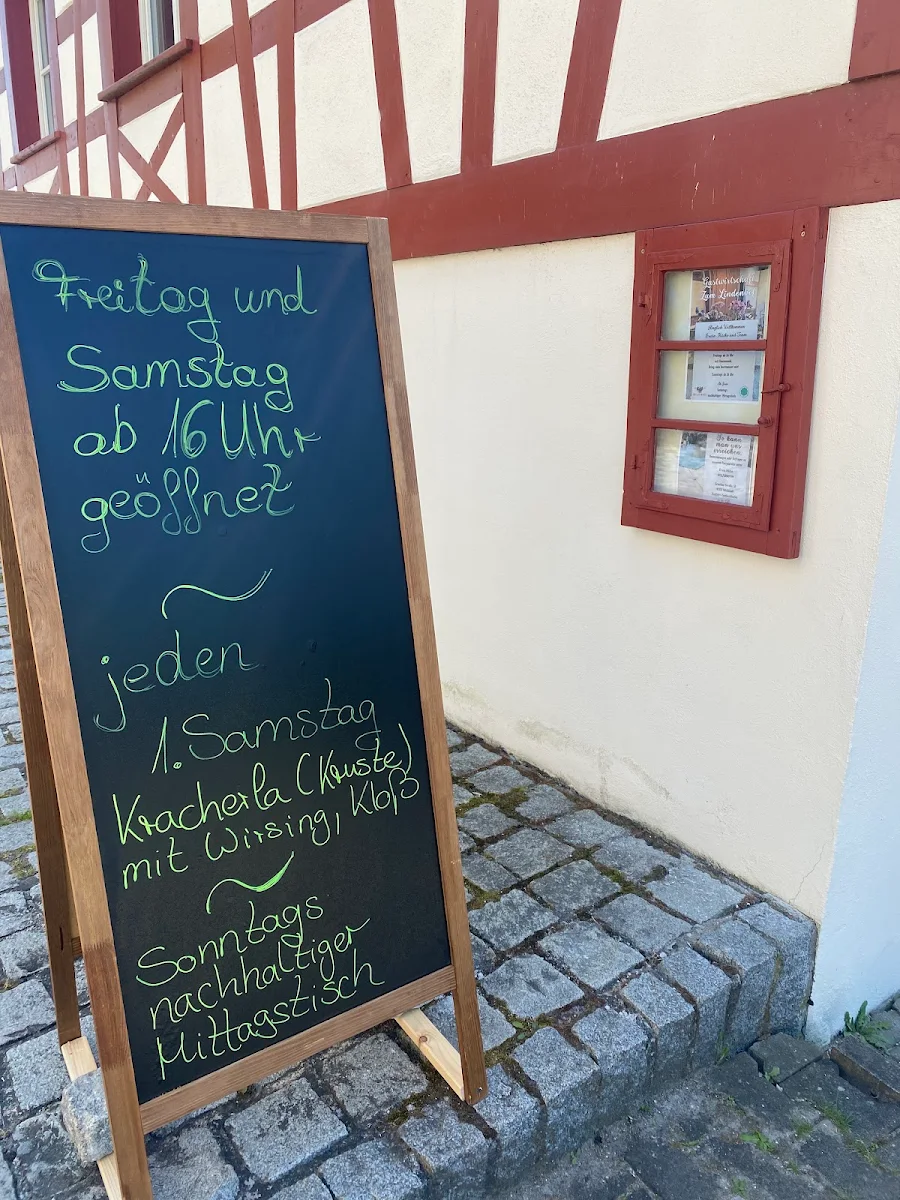 Freitag und
Samstag
ab 16 Uhr
geöffnet
~
jeden
1. Samstag
Kracherla (Kruste)
mit Wirsing, Kloß
~
Sonntags
nachhaltiger
Mittagstisch
Gastwirtschaft
Zum Lindenhof
Herzlich Willkommen
So kann
man uns
erreichen: